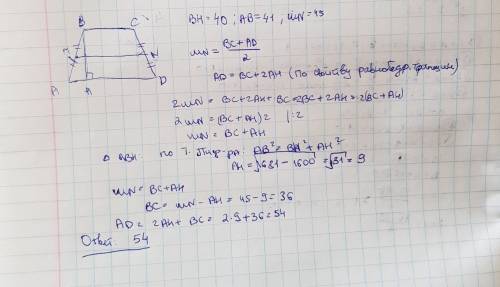 B C
M N
A H D
BH = 40 ; AB = 41 , MN = 45
MN = BC + AD / 2
AD = BC + 2AH (по свойству равнобедр. трапеции)
2MN = BC + 2AH + BC = 2BC + 2AH = 2(BC + AH)
2MN = (BC + AH)2 |:2
MN = BC + AH
△ ABH по т. Пиф-ра: AB² = BH² + AH²
AH = √1681 - 1600 = √81 = 9
MN = BC + AH
BC = MN - AH = 45 - 9 = 36
AD = 2AH + BC = 2·9 + 36 = 54
Ответ: 54